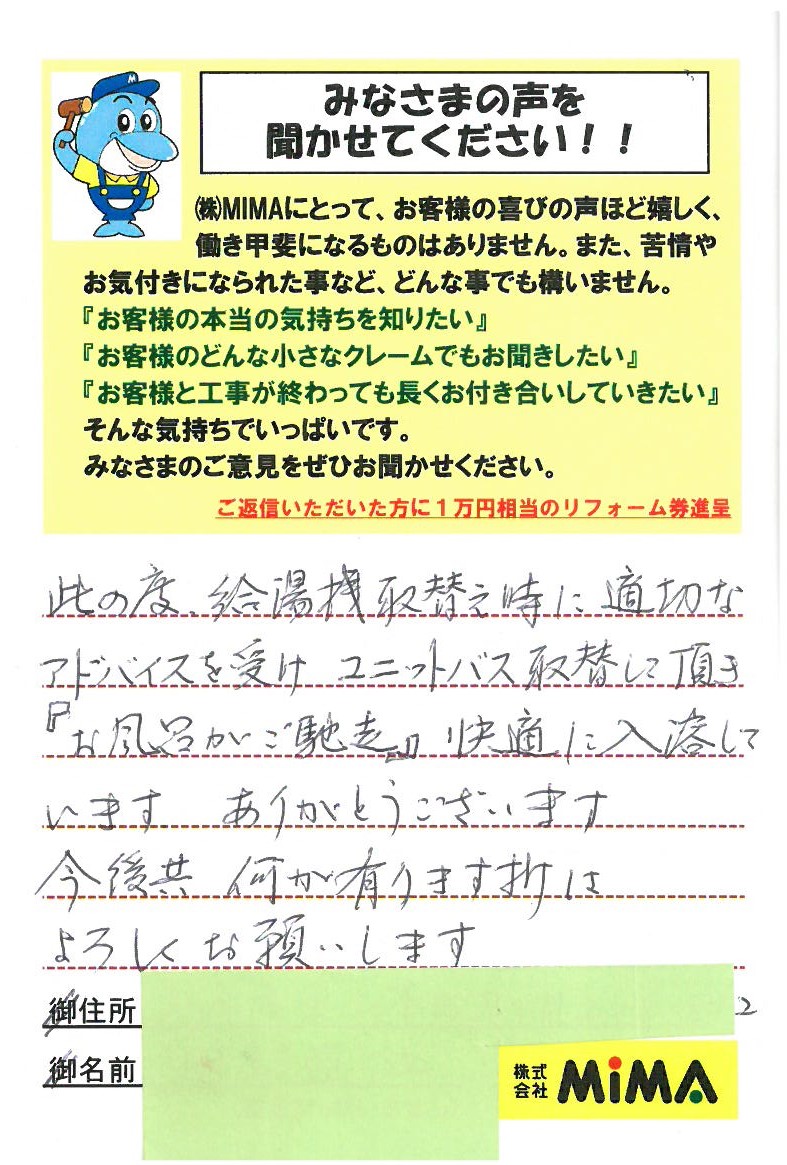 みなさまの声を
聞かせてください！！
㈱MIMAにとって、お客様の喜びの声ほど嬉しく、
働き甲斐になるものはありません。また、苦情や
お気付きになられた事など、どんな事でも構いません。
『お客様の本当の気持ちを知りたい』
『お客様のどんな小さなクレームでもお聞きしたい』
『お客様と工事が終わっても長くお付き合いしていきたい』
そんな気持ちでいっぱいです。
みなさまのご意見をぜひお聞かせください。
ご返信いただいた方に１万円相当のリフォーム券進呈
此の度、給湯機取替え時に適切な
アドバイスを受け ユニットバス取替して頂き
『お風呂がご馳走』快適に入溶して
います ありがとうございます
今後共 何か有ります折は
よろしくお願いします
御住所 2
御名前
株式会社 MiMA
M